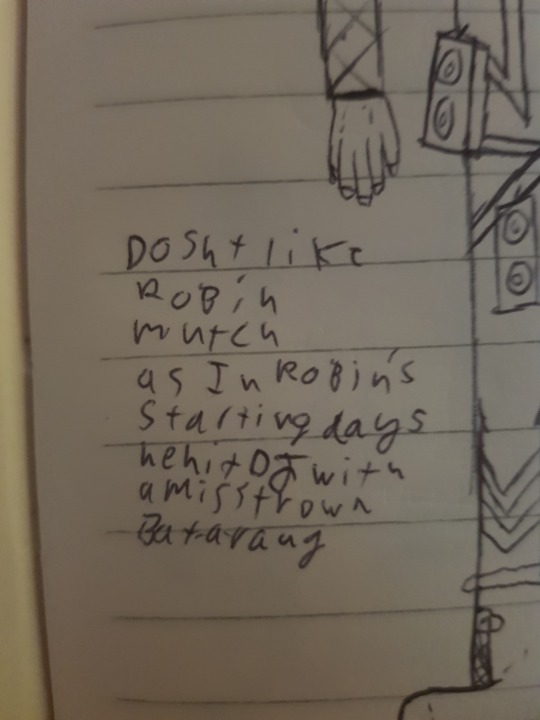 DOSht like
ROBin
mutch
as In ROBin's
Starting days
he hit DJ with
a misstrown
Bataraug